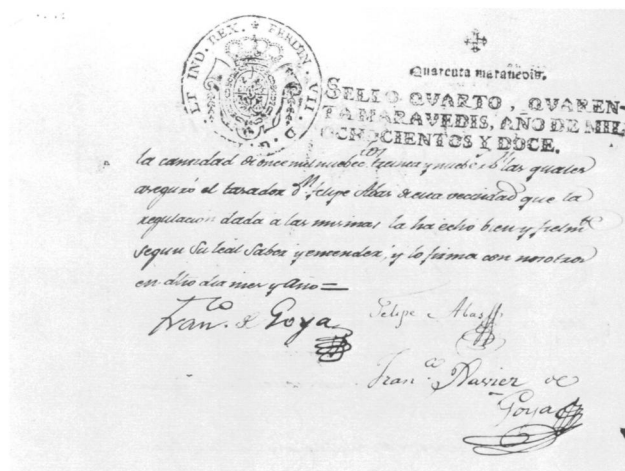 ET IND. REX. * FERDIN. VII. D. G.
Quarenta maravedis.
SELLO QVARTO, QVAREN-
TA MARAVEDIS, AÑO DE MIL
OCHOCIENTOS Y DOCE.
la cantidad de once mil nuebec.tos treinta y nuebe r.s las quales
aseguró el tasador D.n Felipe Abas de esta vecindad que la
regulacion dada a las mismas la ha echo bien y fielm.te
segun su leal saber y entender, y lo firma con nosotros
en dho dia mes y año =
Fran.co de Goya
Felipe Abas
Fran.co Xavier de
Goya